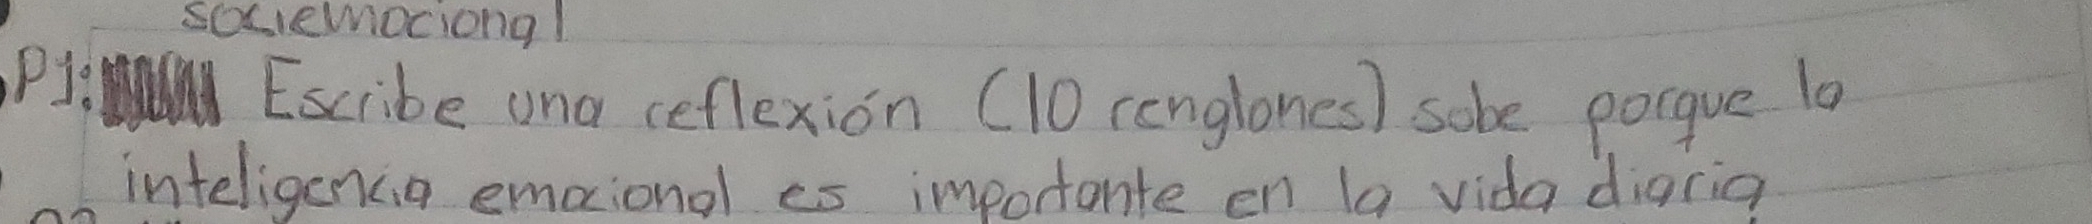 sociemocional
P1: Escribe una reflexión (10 renglones) sobe porque la
inteligencia emocional es importante en la vida diaria